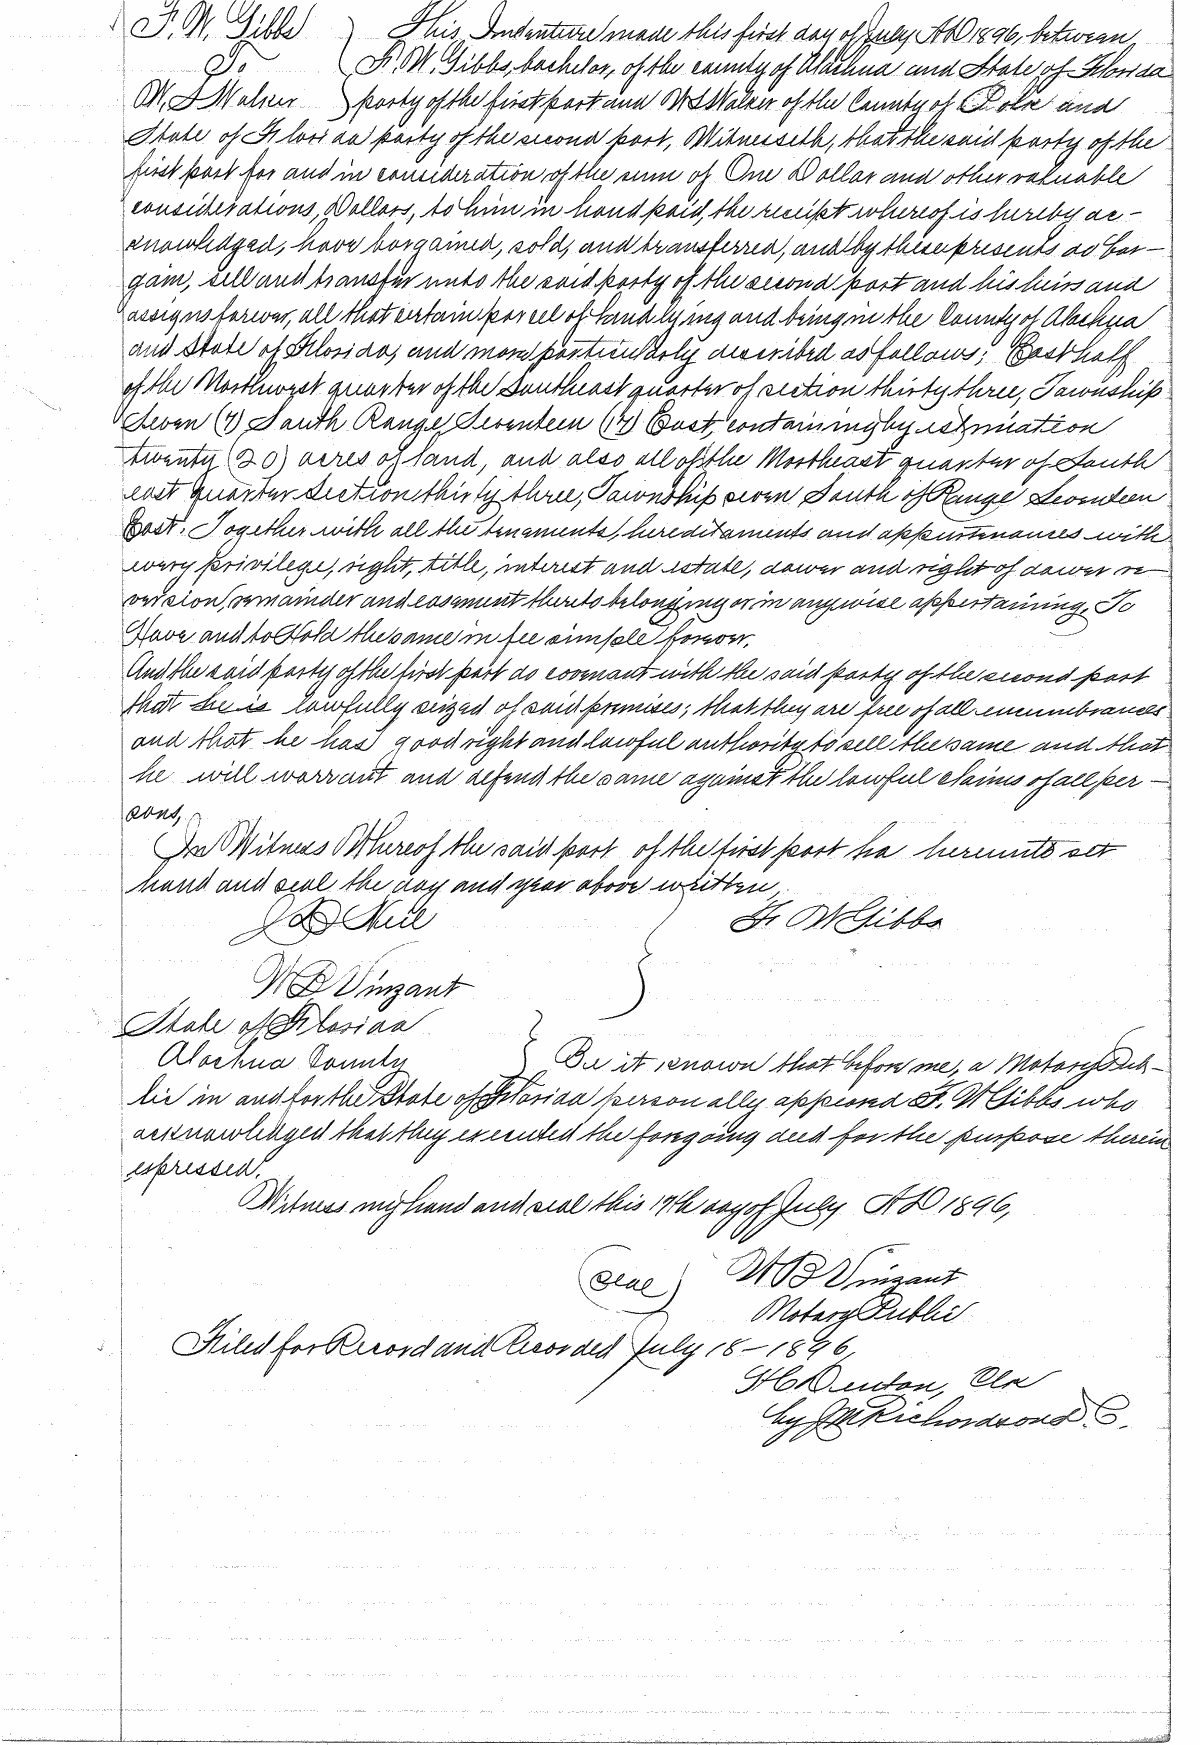 F. W. Gibbs This Indenture made this first day of July AD 1896, between
To F. W. Gibbs, bachelor, of the county of Alachua and State of Florida
W. S Walker party of the first part and W S Walker of the County of Polk and
State of Florida party of the second part, Witnesseth, that the said party of the
first part for and in consideration of the sum of One Dollar and other valuable
considerations, Dollars, to him in hand paid, the receipt whereof is hereby ac-
knowledged, have bargained, sold, and transferred, and by these presents do bar-
gain, sell and transfer unto the said party of the second part and his heirs and
assigns forever, all that certain parcel of land lying and being in the County of Alachua
and State of Florida, and more particularly described as follows; East half
of the Northwest quarter of the Southeast quarter of section thirty three, Township
Seven (7) South Range Seventeen (17) East, containing by estimation
twenty (20) acres of land, and also all of the Northeast quarter of South
east quarter Section thirty three, Township seven South of Range Seventeen
East. Together with all the tenaments, hereditaments and appurtenances with
every privilege, right, title, interest and estate, dower and right of dower re
version, remainder and easement thereto belonging or in anywise appertaining, To
Have and to Hold the same in fee simple forever.
And the said party of the first part do covenant with the said party of the second part
that he is lawfully seized of said premises; that they are free of all encumbrances
and that he has good right and lawful authority to sell the same and that
he will warrant and defend the same against the lawful claims of all per-
sons,
In Witness Whereof the said part of the first part ha hereunto set
hand and seal the day and year above written,
Neil F. W Gibbs
W B Vinzant
State of Florida
Alachua County Be it known that before me, a Notary Pub-
lic in and for the State of Florida personally appeared F. W Gibbs who
acknowledged that they executed the foregoing deed for the purpose therein
expressed.
Witness my hand and seal this 17th day of July AD 1896,
(seal) W B Vinzant
Notary Public
Filed for Record and Recorded July 18-1896,
H C Denton, Clk
by J M Richardson D. C.